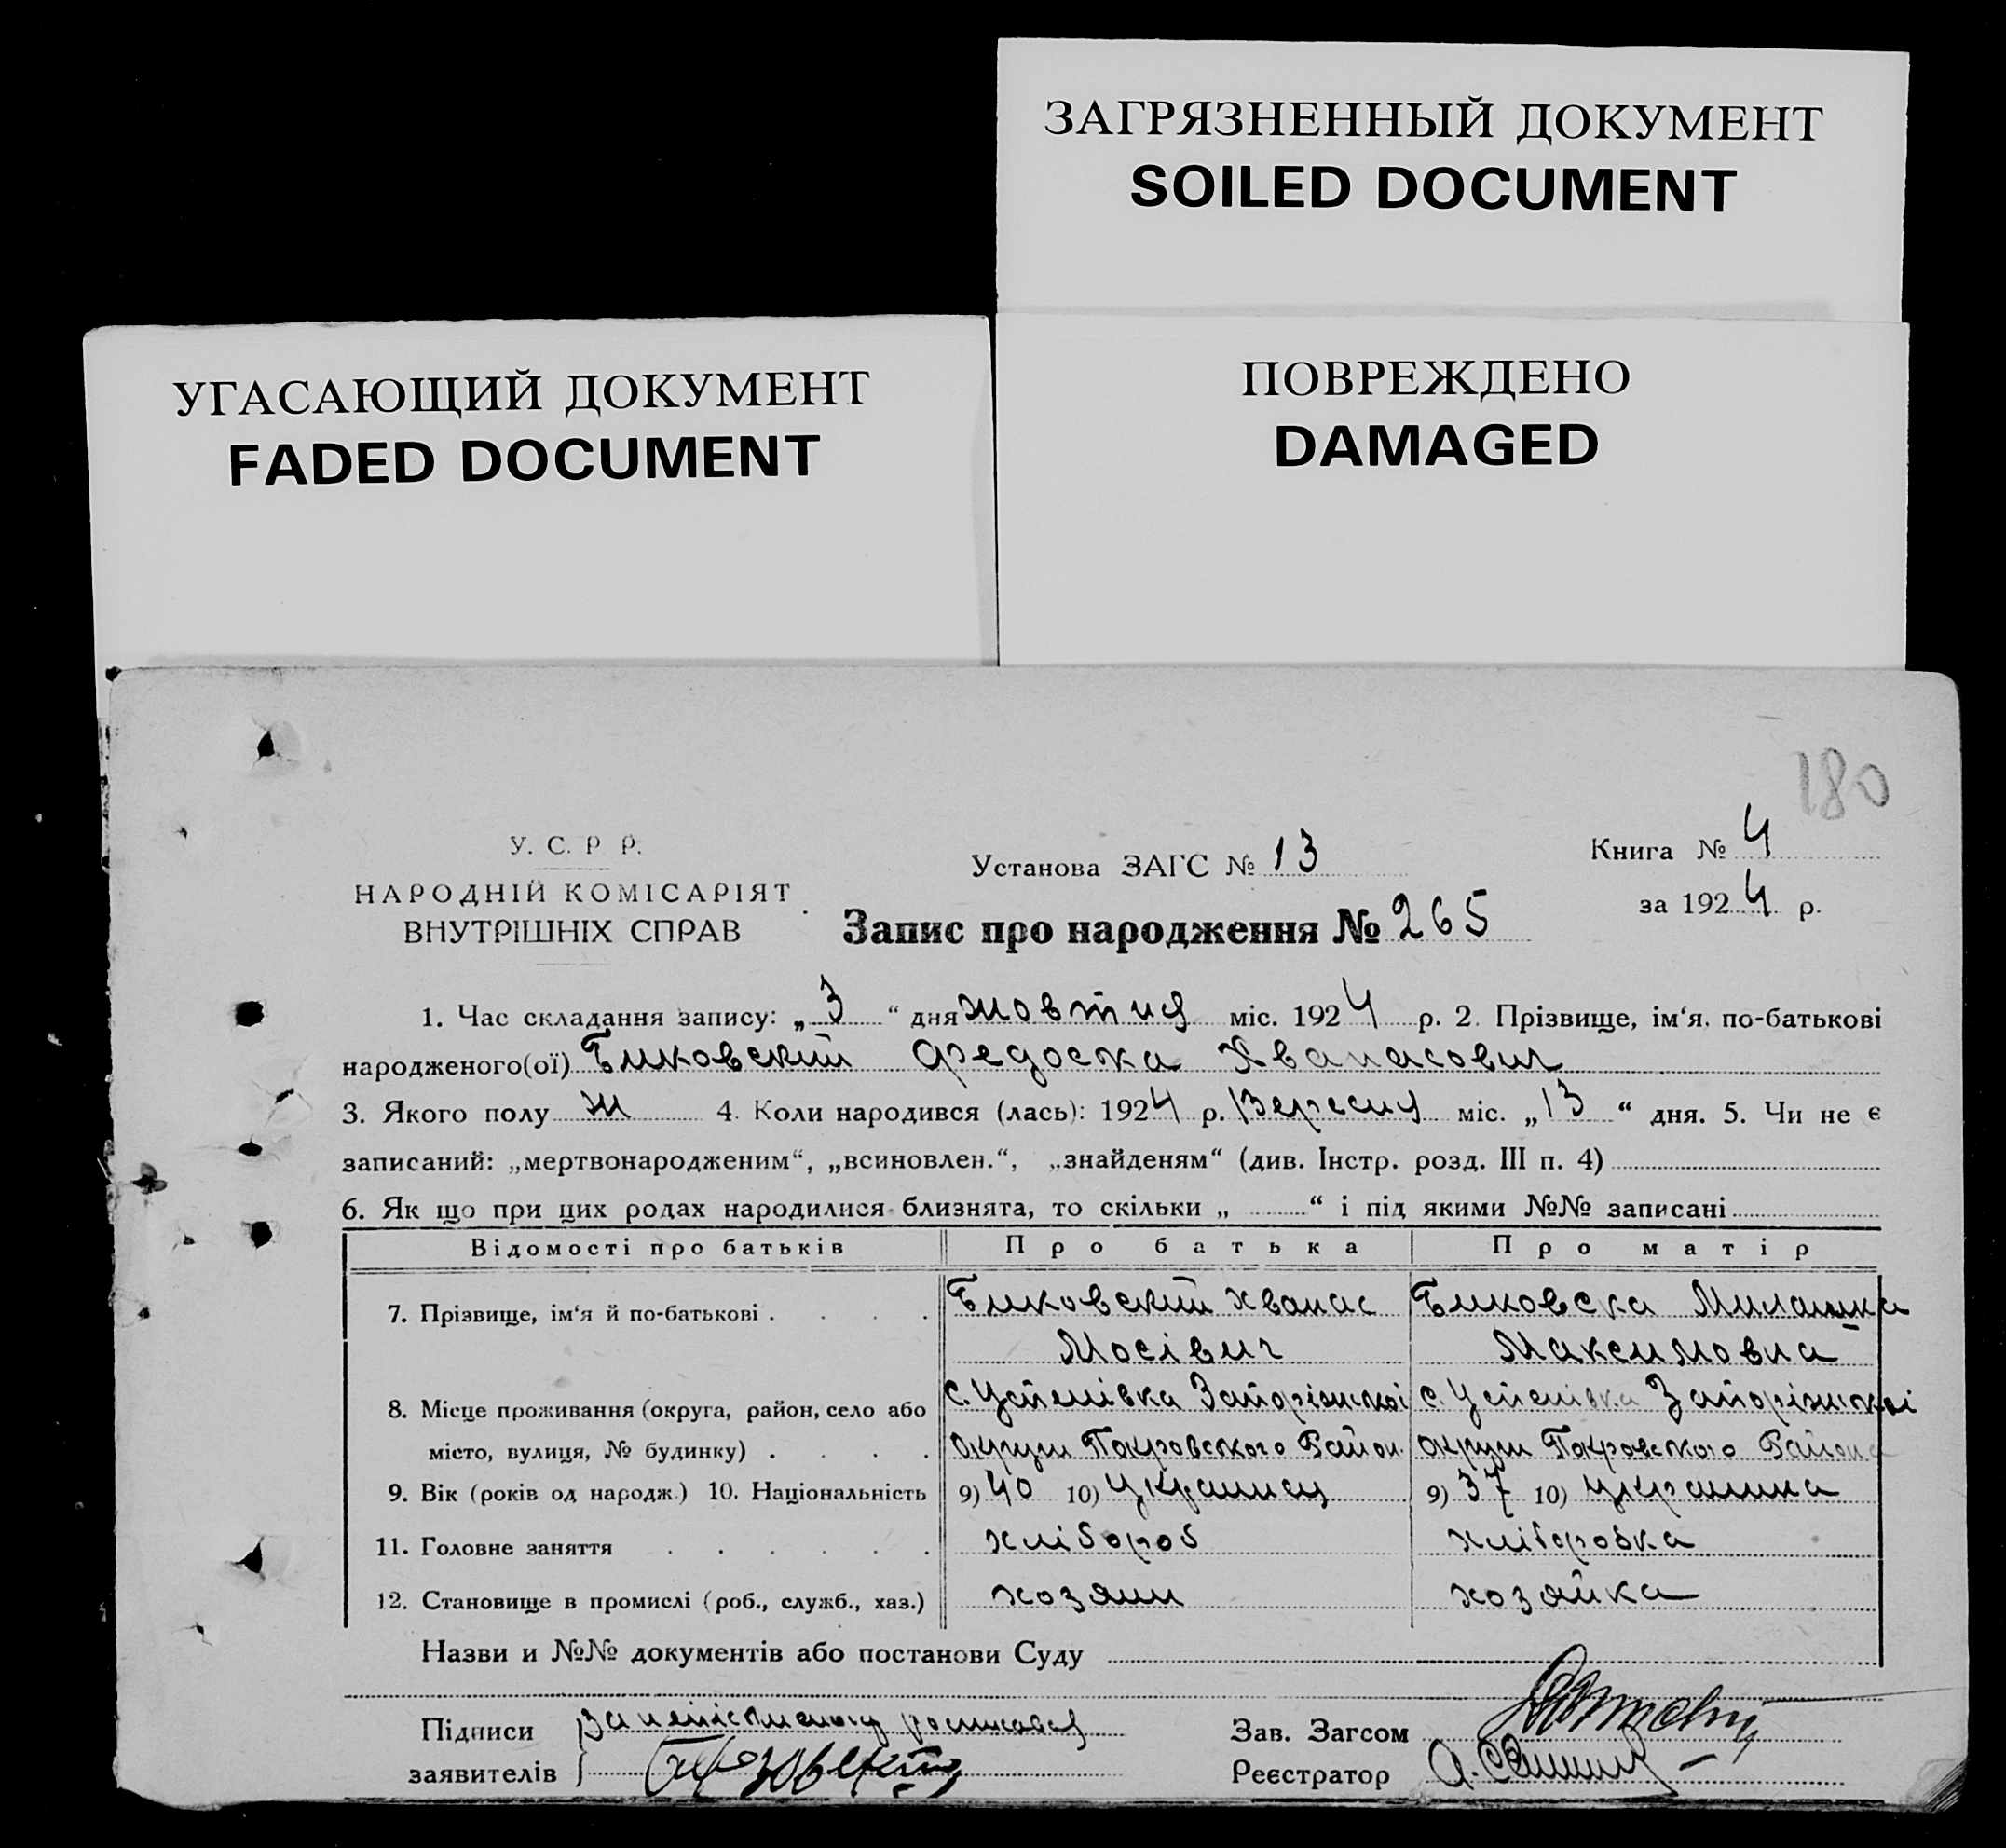 ЗАГРЯЗНЕННЫЙ ДОКУМЕНТ
SOILED DOCUMENT
УГАСАЮЩИЙ ДОКУМЕНТ
FADED DOCUMENT
ПОВРЕЖДЕНО
DAMAGED
180
У. С. Р Р.
НАРОДНІЙ КОМІСАРІЯТ
ВНУТРІШНІХ СПРАВ
Установа ЗАГС № 13
Книга № 4
за 1924 р.
Запис про народження № 265
1. Час складання запису: „ 3 “ дня жовтня міс. 1924 р. 2. Прізвище, ім‘я, по-батькові
народженого(ої) Биковский Федоска Хванасович
3. Якого полу ж 4. Коли народився (лась): 1924 р. Вересня міс. „ 13 “ дня. 5. Чи не є
записаний: „мертвонародженим“, „всиновлен.“, „знайденям“ (див. Інстр. розд. III п. 4)
6. Як що при цих родах народилися близнята, то скільки „ “ і під якими №№ записані
Відомості про батьків Про батька Про матір
7. Прізвище, ім‘я й по-батькові Биковский Хванас Биковска Милашка
Мосівич Максимовна
8. Місце проживання (округа, район, село або с. Успенівка Запоріжскоі с. Успенівка Запоріжскоі
місто, вулиця, № будинку) округи Покровского Район округи Покровского Района
9. Вік (років од народж.) 10. Національність 9) 40 10) Украинец 9) 37 10) Украинка
11. Головне заняття хлібороб хліборобка
12. Становище в промислі (роб., служб., хаз.) хозяин хозяйка
Назви и №№ документів або постанови Суду
Підписи За неписменого росписався Зав. Загсом
заявителів Реєстратор